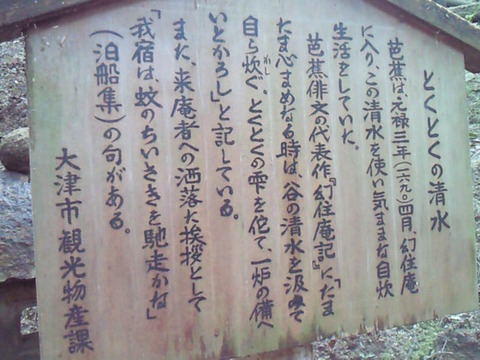 とくとくの清水
芭蕉は、元禄三年(一六九〇)四月、幻住庵
に入り、この清水を使い気ままな自炊
生活をしていた。
芭蕉俳文の代表作『幻住庵記』に、「たま
たま心まめなる時は、谷の清水を汲みて
自ら炊ぐ。とくとくの雫を侘て、一炉の備へ
いとかろし」と記している。
また、来庵者への洒落た挨拶として
「我宿は、蚊のちいさきを馳走かな」
(泊船集)の句がある。
大津市観光物産課